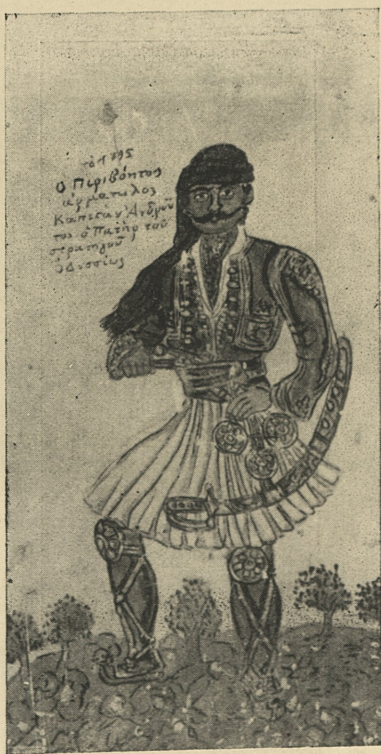 τὸ 1795
Ὁ Περιβόητος
ἀρματωλος
Καπιτὰν Ἀνδροῦ
τσος ὁ Πατὴρ τοῦ
στρατηγοῦ
ὀδυσσέως